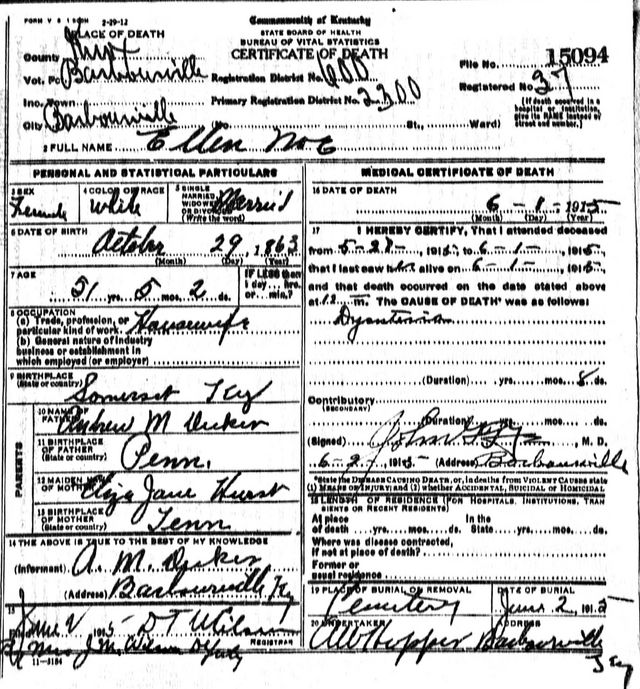 FORM V S 2-29-12
PLACE OF DEATH
Commonwealth of Kentucky
STATE BOARD OF HEALTH
BUREAU OF VITAL STATISTICS
CERTIFICATE OF DEATH
County Knox
Vot. Barbourville
Registration District No. 600
File No. 15094
Inc. Town
Primary Registration District No. 2300
Registered No. 37
City Barbourville (No. St., Ward)
(If death occurred in a hospital or institution, give its NAME instead of street and number.)
2 FULL NAME Ellen Noe
PERSONAL AND STATISTICAL PARTICULARS
3 SEX Female
4 COLOR OR RACE White
5 SINGLE MARRIED WIDOWED OR DIVORCED (Write the word) Married
6 DATE OF BIRTH October 29, 1863
(Month) (Day) (Year)
7 AGE 51 yrs. 5 mos. 2 ds.
IF LESS than 1 day ... hrs. or ... min.?
8 OCCUPATION
(a) Trade, profession, or particular kind of work Housewife
(b) General nature of industry
business or establishment in
which employed (or employer)
9 BIRTHPLACE
(State or country) Somerset Ky
PARENTS
10 NAME OF FATHER Andrew M
11 BIRTHPLACE OF FATHER
(State or country) Penn.
12 MAIDEN NAME OF MOTHER Eliza Jane Hurst
13 BIRTHPLACE OF MOTHER
(State or country) Tenn
14 THE ABOVE IS TRUE TO THE BEST OF MY KNOWLEDGE
(Informant) A. M.
(Address) Barbourville Ky
15
June 1915 D T Wilson
REGISTRAR
Mrs J. M. Wilson Dpty
11-3184
MEDICAL CERTIFICATE OF DEATH
16 DATE OF DEATH 6-1-1915
(Month) (Day) (Year)
17 I HEREBY CERTIFY, That I attended deceased
from 5-27-, 1915, to 6-1-, 1915
that I last saw alive on 6-1-, 1915
and that death occurred on the date stated above
at 12 m. The CAUSE OF DEATH* was as follows:
(Duration) yrs. mos. 8 ds.
Contributory
(SECONDARY)
(Duration) yrs. mos. ds.
(Signed) M. D.
6-2, 1915 (Address) Barbourville
*State the DISEASE CAUSING DEATH, or, in deaths from VIOLENT CAUSES state
(1) MEANS OF INJURY; and (2) whether ACCIDENTAL, SUICIDAL or HOMICIDAL
18 LENGTH OF RESIDENCE (FOR HOSPITALS, INSTITUTIONS, TRANSIENTS OR RECENT RESIDENTS)
At place of death yrs. mos. ds. In the State yrs. mos. ds.
Where was disease contracted,
if not at place of death?
Former or
usual residence
19 PLACE OF BURIAL OR REMOVAL Cemetery
DATE OF BURIAL June 2, 1915
20 UNDERTAKER Hopper
ADDRESS Barbourville Ky